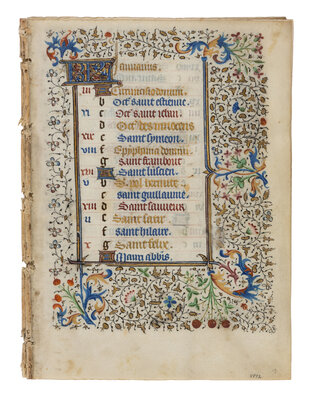 KL Januarius.
III Circoncisio domini.
b Oct' saint estienne.
XI c Oct' saint iehan.
d Oct' des innocens
XIX e Saint symeon.
VIII f Epyphania domini.
g saint frambout
XVI A Saint lucien.
V b S. pol hermite
c saint guillaume.
XIII d Saint sauueur
II e Saint satir
f saint hilaire.
X g Saint felix.
A Mauri abbis.